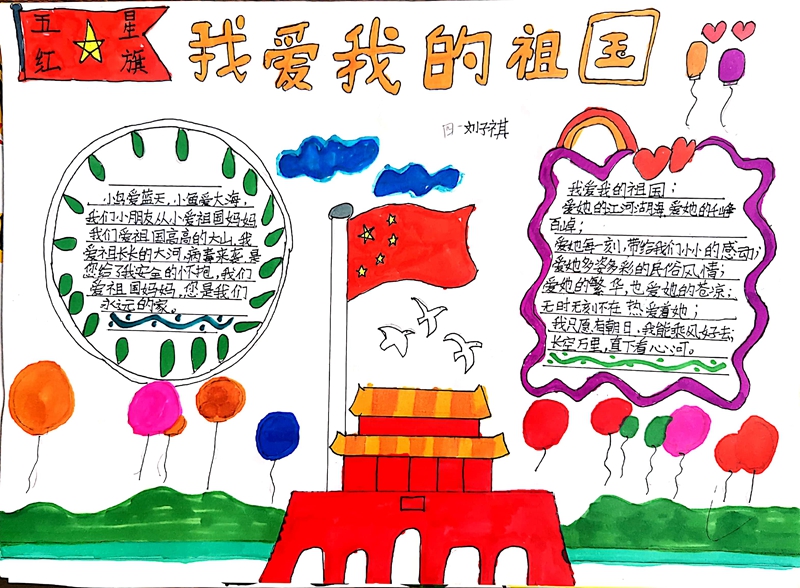 五星
红旗
我爱我的祖国
小鸟爱蓝天,小鱼爱大海,
我们小朋友从小爱祖国妈妈
我们爱祖国高高的大山,我
爱祖长长的大河,病毒来袭,是
您给了我安全的怀抱,我们
爱祖国妈妈,您是我们
永远的家。
我爱我的祖国;
爱她的江河湖海 爱她的
百岸;
爱她每一刻,带给我们小小的感动;
爱她多姿多彩的民俗风情;
爱她的繁华,也爱她的苍凉;
无时无刻不在热爱着她;
我只愿有朝日,我能乘风好去;
长空万里,直下看心河。